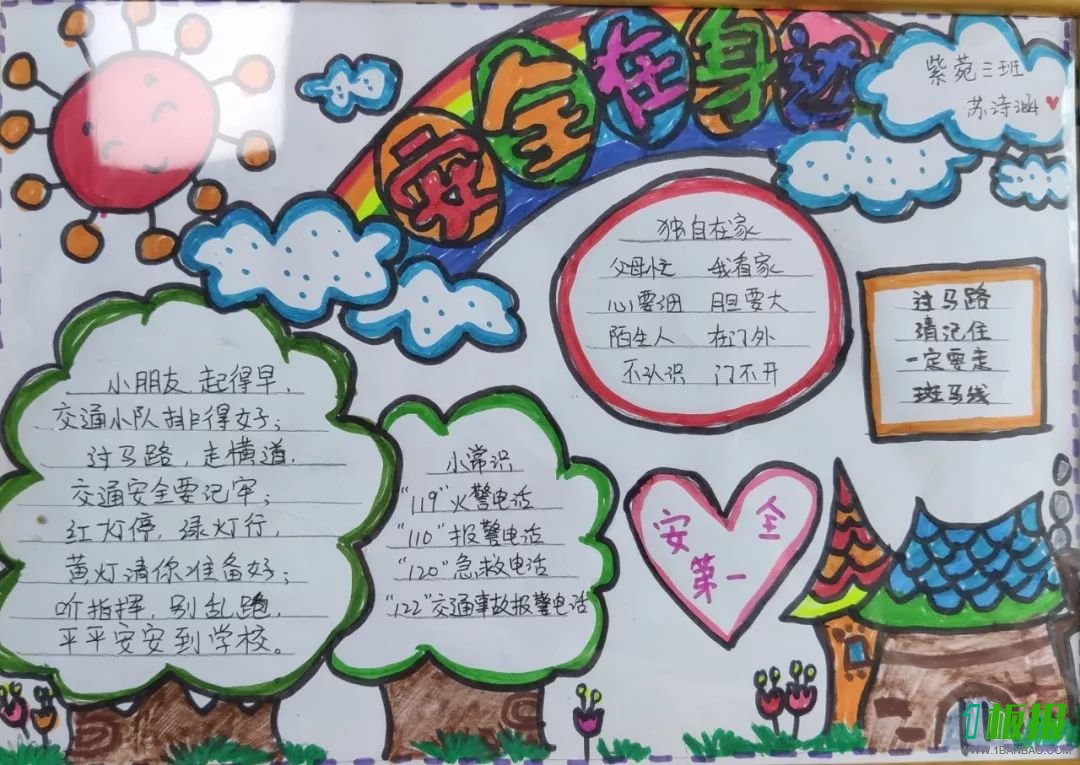 安全在身边
紫苑三班
苏诗涵
独自在家
父母忙 我看家
心要细 胆要大
陌生人 在门外
不认识 门不开
过马路
请记住
一定要走
斑马线
小朋友 起得早,
交通小队排得好;
过马路,走横道,
交通安全要记牢;
红灯停,绿灯行,
黄灯请你准备好;
听指挥,别乱跑,
平平安安到学校。
小常识
“119”火警电话
“110”报警电话
“120”急救电话
“122”交通事故报警电话
安全
第一
1板报
WWW.1BANBAO.COM